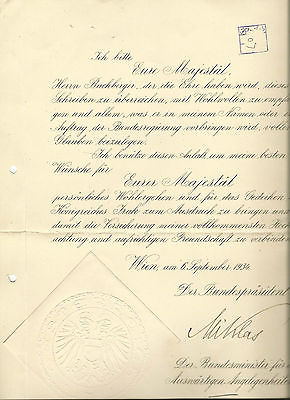 Ich bitte
Eure Majestät,
Herrn Buchberger, der die Ehre haben wird, dieses
Schreiben zu überreichen, mit Wohlwollen zu empfan
gen und allem, was er in meinem Namen oder im
Auftrag der Bundesregierung vorbringen wird, vollen
Glauben beizulegen.
Ich benütze diesen Anlaß, um meine besten
Wünsche für
Eurer Majestät
persönliches Wohlergehen und für das Gedeihen
Königreiches Irak zum Ausdruck zu bringen und
damit die Versicherung meiner vollkommensten Hoch
achtung und aufrichtigen Freundschaft zu verbinden
Wien, am 6. September 1934.
Der Bundespräsident
Miklas
Der Bundesminister für
Auswärtigen Angelegenheiten